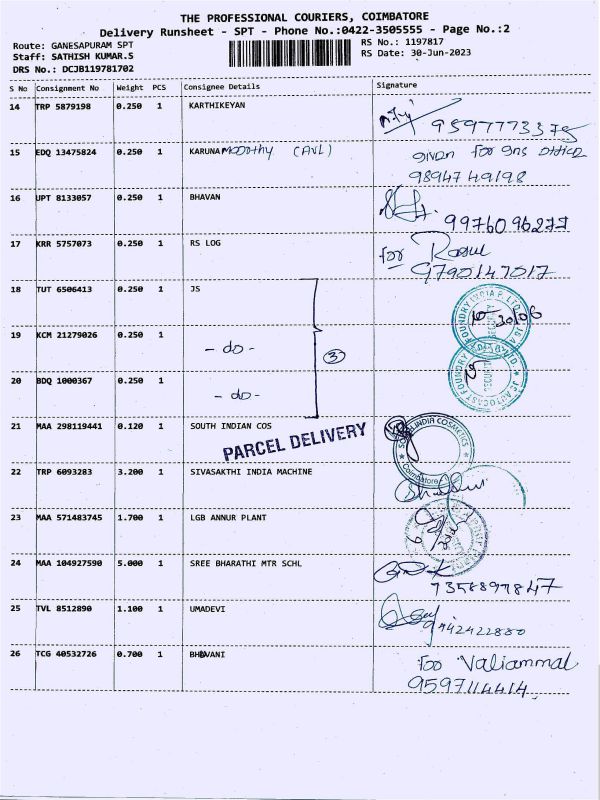 THE PROFESSIONAL COURIERS, COIMBATORE
Delivery Runsheet - SPT - Phone No.:0422-3505555 - Page No.:2
Route: GANESAPURAM SPT
RS No.: 1197817
Staff: SATHISH KUMAR.S
RS Date: 30-Jun-2023
DRS No.: DCJB119781702
S No Consignment No Weight PCS Consignee Details Signature
14 TRP 5879198 0.250 1 KARTHIKEYAN
9597773375
15 EDQ 13475824 0.250 1 KARUNAmoorthy (AVL) given for gns office
9894749198
16 UPT 8133057 0.250 1 BHAVAN
9976096277
17 KRR 5757073 0.250 1 RS LOG for Rasul
9790147017
18 TUT 6506413 0.250 1 JS
30/06
19 KCM 21279026 0.250 1
- do -
③
20 BDQ 1000367 0.250 1
- do -
21 MAA 298119441 0.120 1 SOUTH INDIAN COS
PARCEL DELIVERY
22 TRP 6093283 3.200 1 SIVASAKTHI INDIA MACHINE
23 MAA 571483745 1.700 1 LGB ANNUR PLANT
24 MAA 104927590 5.000 1 SREE BHARATHI MTR SCHL
7358897847
25 TVL 8512890 1.100 1 UMADEVI
9442422880
26 TCG 40532726 0.700 1 BHAVANI for Valiammal
9597114414